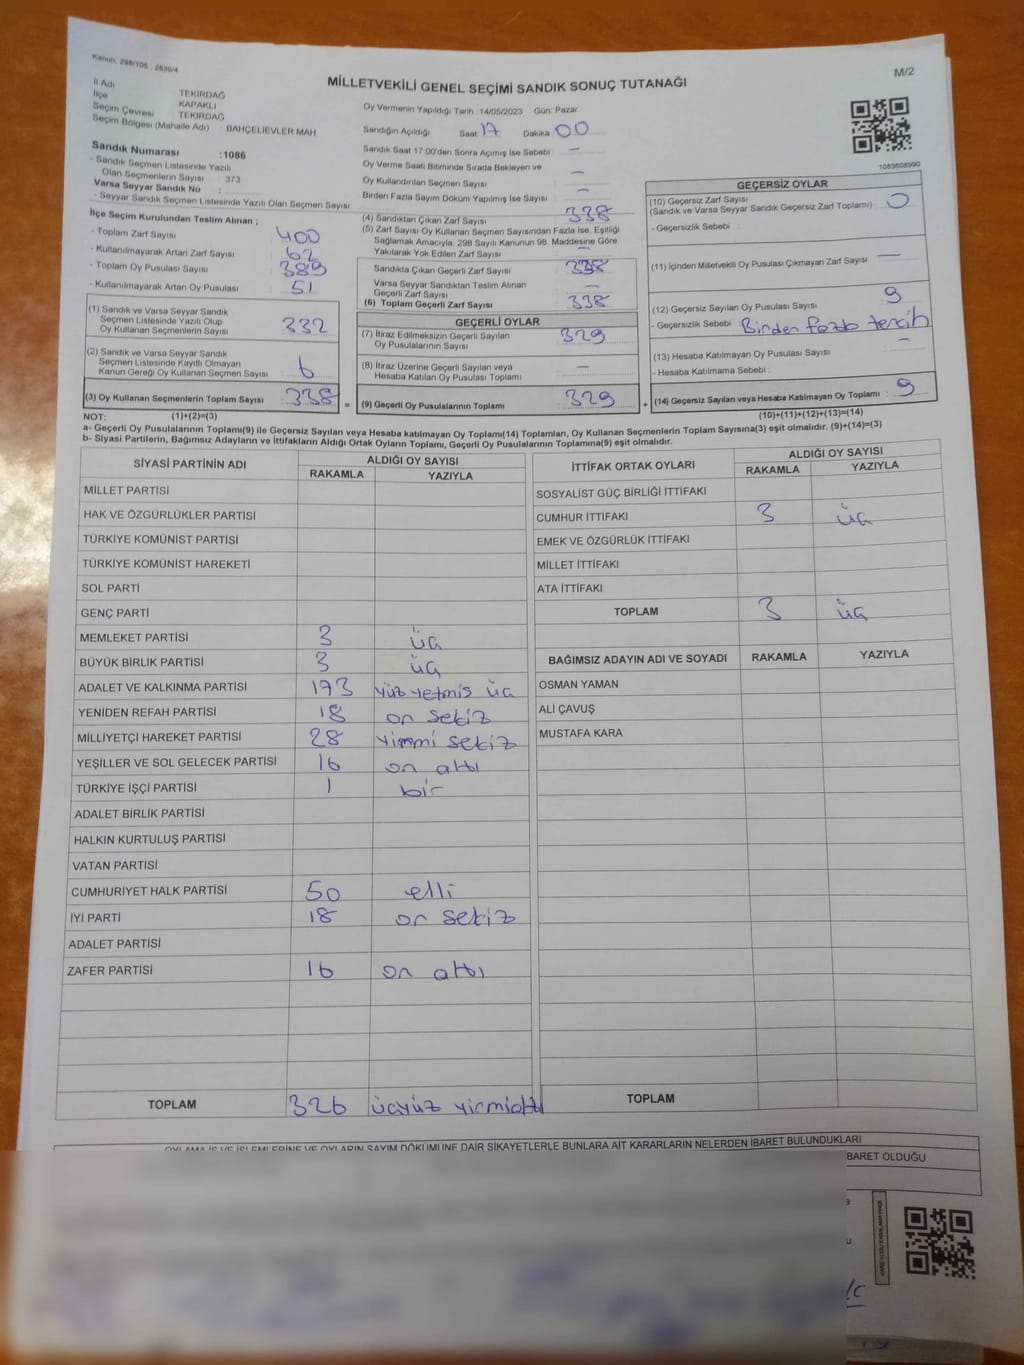 Kanun: 298/105 , 2839/4
MİLLETVEKİLİ GENEL SEÇİMİ SANDIK SONUÇ TUTANAĞI
M/2
İl Adı TEKİRDAĞ
İlçe KAPAKLI
Seçim Çevresi TEKİRDAĞ
Seçim Bölgesi (Mahalle Adı) : BAHÇELİEVLER MAH.
Sandık Numarası :1086
- Sandık Seçmen Listesinde Yazılı
Olan Seçmenlerin Sayısı : 373
Varsa Seyyar Sandık No :
- Seyyar Sandık Seçmen Listesinde Yazılı Olan Seçmen Sayısı:
İlçe Seçim Kurulundan Teslim Alınan ;
- Toplam Zarf Sayısı 400
- Kullanılmayarak Artan Zarf Sayısı 62
- Toplam Oy Pusulası Sayısı 389
- Kullanılmayarak Artan Oy Pusulası 51
(1) Sandık ve Varsa Seyyar Sandık
Seçmen Listesinde Yazılı Olup
Oy Kullanan Seçmenlerin Sayısı 332
(2) Sandık ve Varsa Seyyar Sandık
Seçmen Listesinde Kayıtlı Olmayan
Kanun Gereği Oy Kullanan Seçmen Sayısı 6
(3) Oy Kullanan Seçmenlerin Toplam Sayısı 338 =
Oy Vermenin Yapıldığı Tarih :14/05/2023 Gün: Pazar
Sandığın Açıldığı Saat 17 Dakika 00
Sandık Saat 17:00'den Sonra Açımış İse Sebebi —
Oy Verme Saati Bitiminde Sırada Bekleyen ve
Oy Kullandırılan Seçmen Sayısı —
Birden Fazla Sayım Döküm Yapılmış İse Sayısı —
(4) Sandıktan Çıkan Zarf Sayısı 338
(5) Zarf Sayısı Oy Kullanan Seçmen Sayısından Fazla İse, Eşitliği
Sağlamak Amacıyla, 298 Sayılı Kanunun 98. Maddesine Göre
Yakılarak Yok Edilen Zarf Sayısı —
Sandıkta Çıkan Geçerli Zarf Sayısı 338
Varsa Seyyar Sandıktan Teslim Alınan
Geçerli Zarf Sayısı —
(6) Toplam Geçerli Zarf Sayısı 338
GEÇERLİ OYLAR
(7) İtiraz Edilmeksizin Geçerli Sayılan
Oy Pusulalarının Sayısı 329
(8) İtiraz Üzerine Geçerli Sayılan veya
Hesaba Katılan Oy Pusulası Toplamı —
(9) Geçerli Oy Pusulalarının Toplamı 329 +
1083608990
GEÇERSİZ OYLAR
(10) Geçersiz Zarf Sayısı
(Sandık ve Varsa Seyyar Sandık Geçersiz Zarf Toplamı) : 0
- Geçersizlik Sebebi :
(11) İçinden Milletvekili Oy Pusulası Çıkmayan Zarf Sayısı —
(12) Geçersiz Sayılan Oy Pusulası Sayısı 9
- Geçersizlik Sebebi : Birden fazla tercih
(13) Hesaba Katılmayan Oy Pusulası Sayısı —
- Hesaba Katılmama Sebebi :
(14) Geçersiz Sayılan veya Hesaba Katılmayan Oy Toplamı : 9
NOT: (1)+(2)=(3) (10)+(11)+(12)+(13)=(14)
a- Geçerli Oy Pusulalarının Toplamı(9) ile Geçersiz Sayılan veya Hesaba katılmayan Oy Toplamı(14) Toplamları, Oy Kullanan Seçmenlerin Toplam Sayısına(3) eşit olmalıdır. (9)+(14)=(3)
b- Siyasi Partilerin, Bağımsız Adayların ve İttifakların Aldığı Ortak Oyların Toplamı, Geçerli Oy Pusulalarının Toplamına(9) eşit olmalıdır.
SİYASİ PARTİNİN ADI ALDIĞI OY SAYISI
RAKAMLA YAZIYLA
MİLLET PARTİSİ
HAK VE ÖZGÜRLÜKLER PARTİSİ
TÜRKİYE KOMÜNİST PARTİSİ
TÜRKİYE KOMÜNİST HAREKETİ
SOL PARTİ
GENÇ PARTİ
MEMLEKET PARTİSİ 3 üç
BÜYÜK BİRLİK PARTİSİ 3 üç
ADALET VE KALKINMA PARTİSİ 173 yüz yetmiş üç
YENİDEN REFAH PARTİSİ 18 on sekiz
MİLLİYETÇİ HAREKET PARTİSİ 28 yirmi sekiz
YEŞİLLER VE SOL GELECEK PARTİSİ 16 on altı
TÜRKİYE İŞÇİ PARTİSİ 1 bir
ADALET BİRLİK PARTİSİ
HALKIN KURTULUŞ PARTİSİ
VATAN PARTİSİ
CUMHURİYET HALK PARTİSİ 50 elli
İYİ PARTİ 18 on sekiz
ADALET PARTİSİ
ZAFER PARTİSİ 16 on altı
TOPLAM 326 üçyüz yirmialtı
İTTİFAK ORTAK OYLARI ALDIĞI OY SAYISI
RAKAMLA YAZIYLA
SOSYALİST GÜÇ BİRLİĞİ İTTİFAKI
CUMHUR İTTİFAKI 3 üç
EMEK VE ÖZGÜRLÜK İTTİFAKI
MİLLET İTTİFAKI
ATA İTTİFAKI
TOPLAM 3 üç
BAĞIMSIZ ADAYIN ADI VE SOYADI RAKAMLA YAZIYLA
OSMAN YAMAN
ALİ ÇAVUŞ
MUSTAFA KARA
TOPLAM
OYLAMA İŞ VE İŞLEMLERİNE VE OYLARIN SAYIM DÖKÜMÜNE DAİR ŞİKAYETLERLE BUNLARA AİT KARARLARIN NELERDEN İBARET BULUNDUKLARI
BARET OLDUĞU